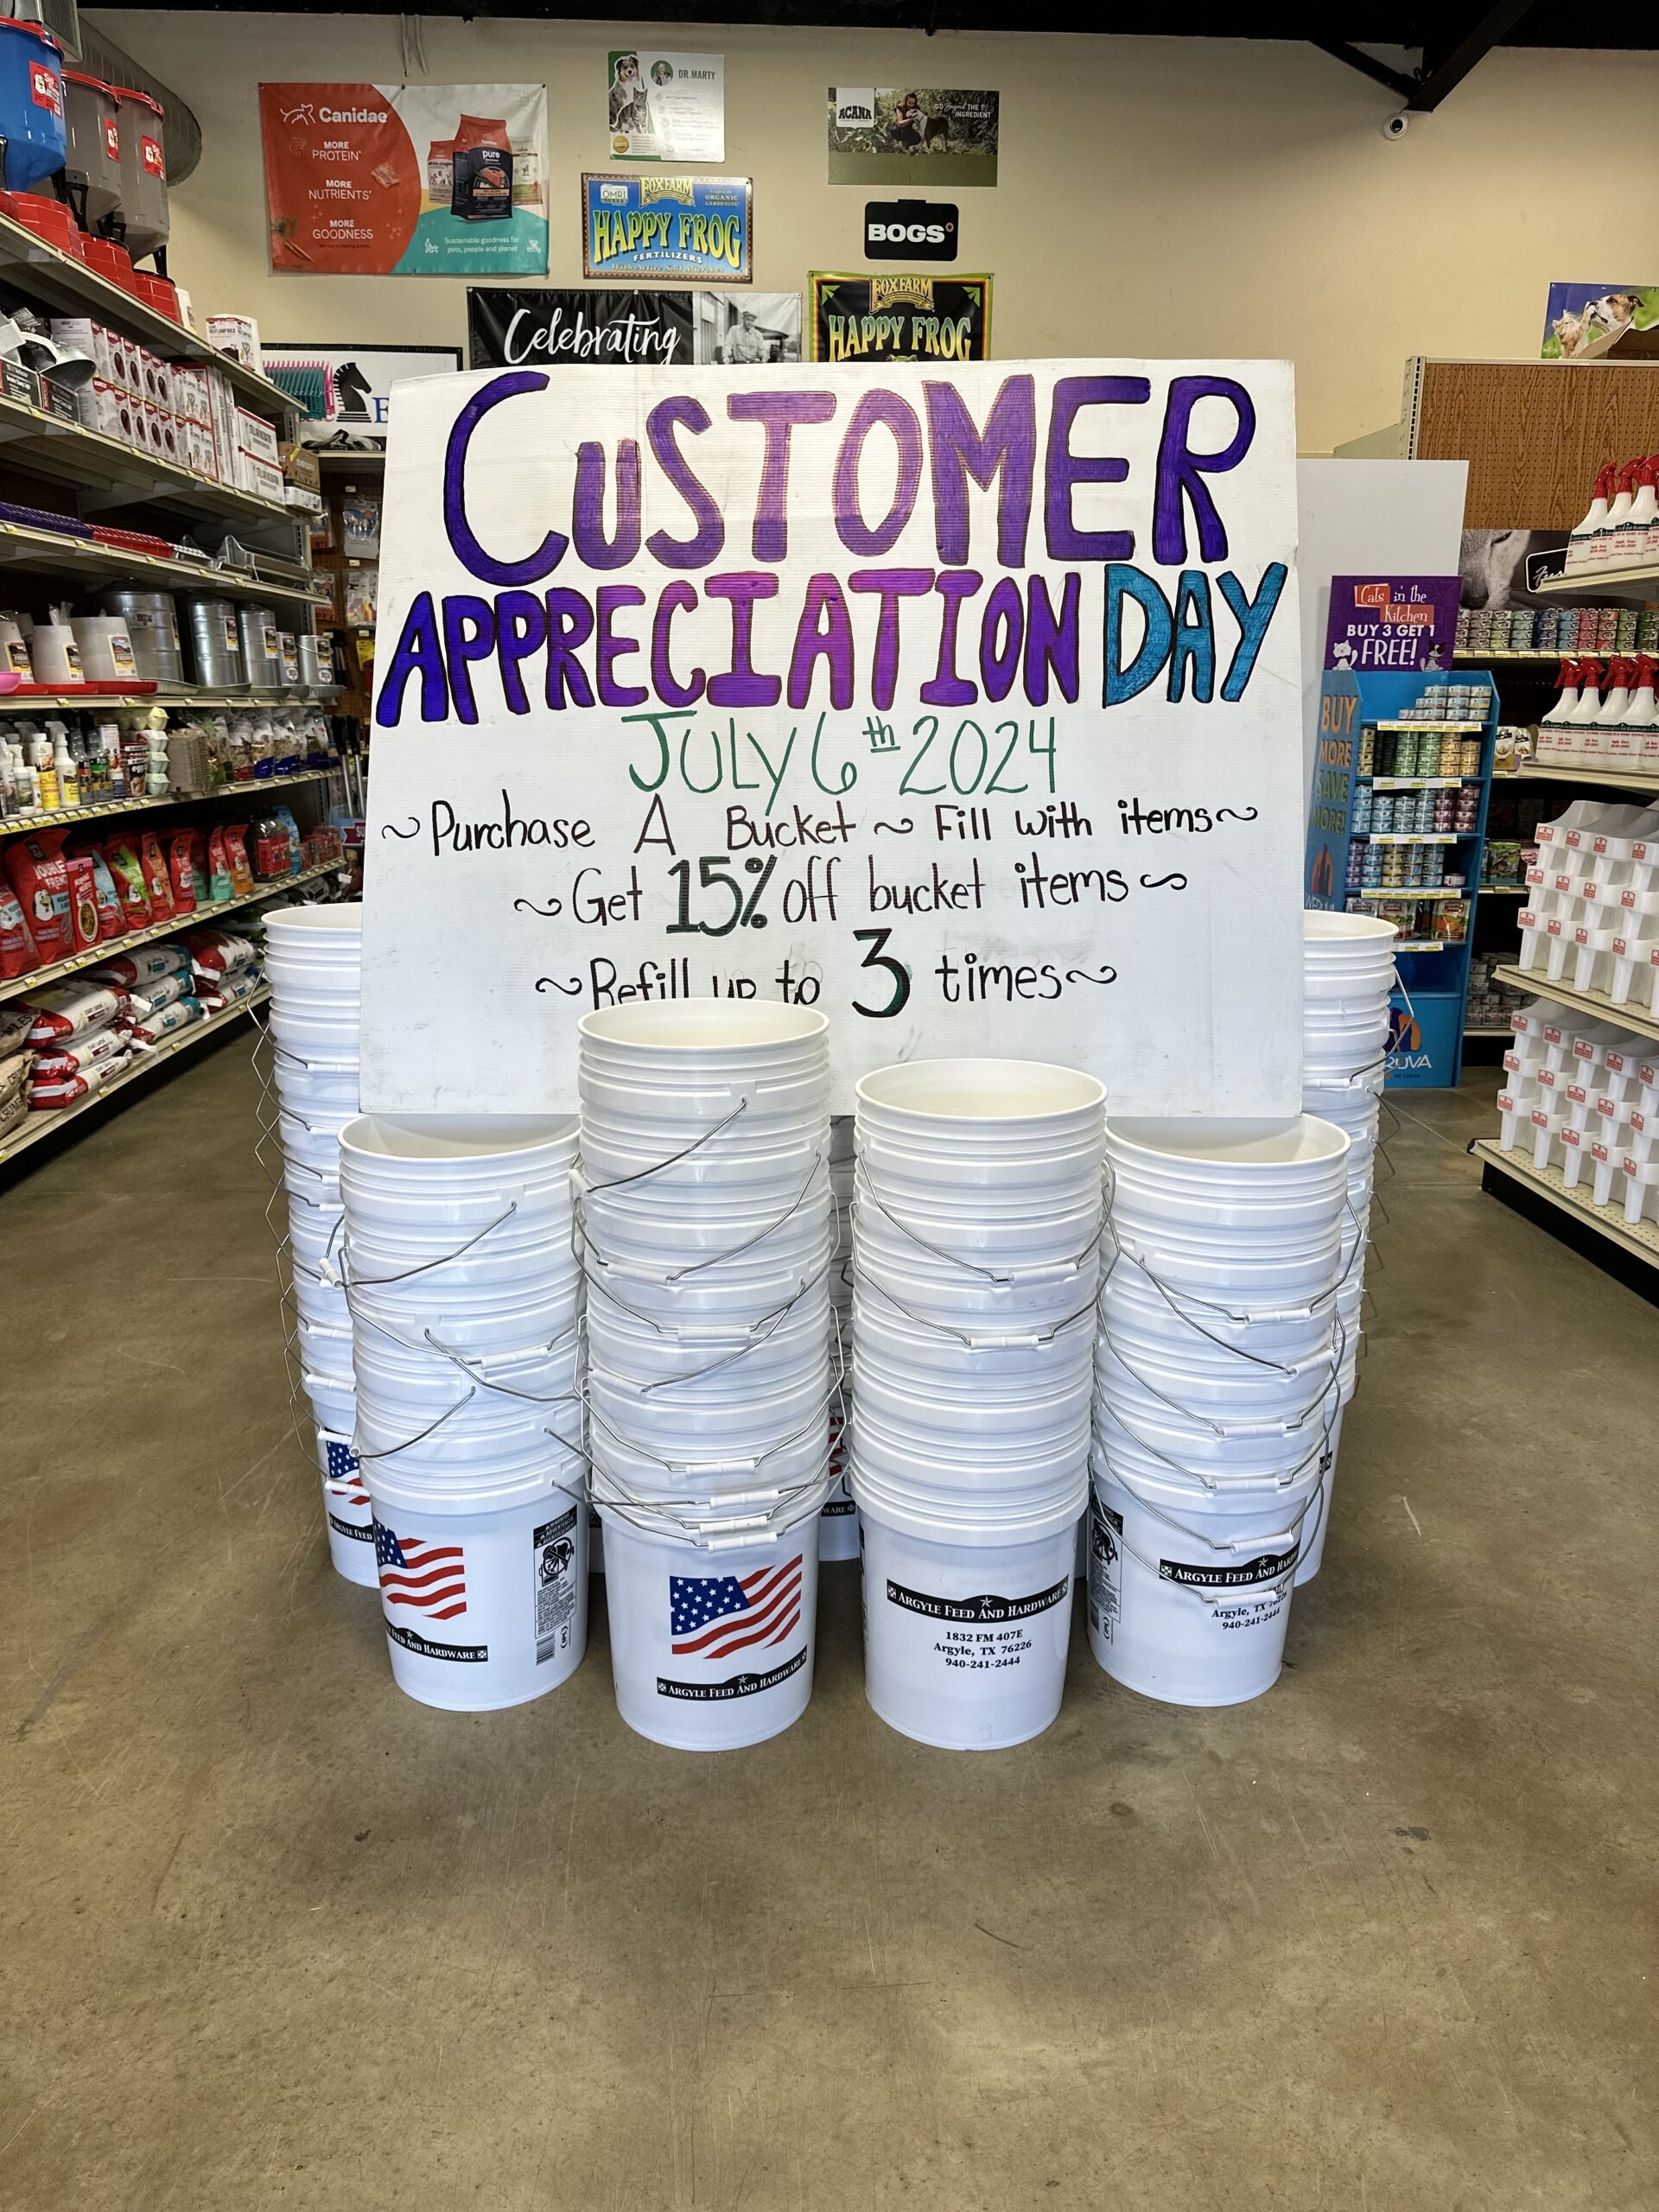 Canidae
MORE
PROTEIN*
MORE
NUTRIENTS*
MORE
GOODNESS
pure
Sustainable goodness for
pets, people and planet
DR. MARTY
OMRI
FOXFARM
ORGANIC
GARDENING
HAPPY FROG
FERTILIZERS
ACANA
GO Beyond THE 1ST
INGREDIENT
BOGS
Celebrating
FOXFARM
HAPPY FROG
CUSTOMER
APPRECIATION DAY
JULY 6th 2024
~Purchase A Bucket ~ Fill with items~
~Get 15% off bucket items~
~Refill up to 3 times~
Cats in the
Kitchen
BUY 3 GET 1
FREE!
BUY
MORE
SAVE
MORE!
FEED AND HARDWARE
ARGYLE FEED AND HARDWARE
ARGYLE FEED AND HARDWARE
1832 FM 407E
Argyle, TX 76226
940-241-2444
ARGYLE FEED AND HARD
Argyle, TX
940-241-2444
ARGYLE FEED